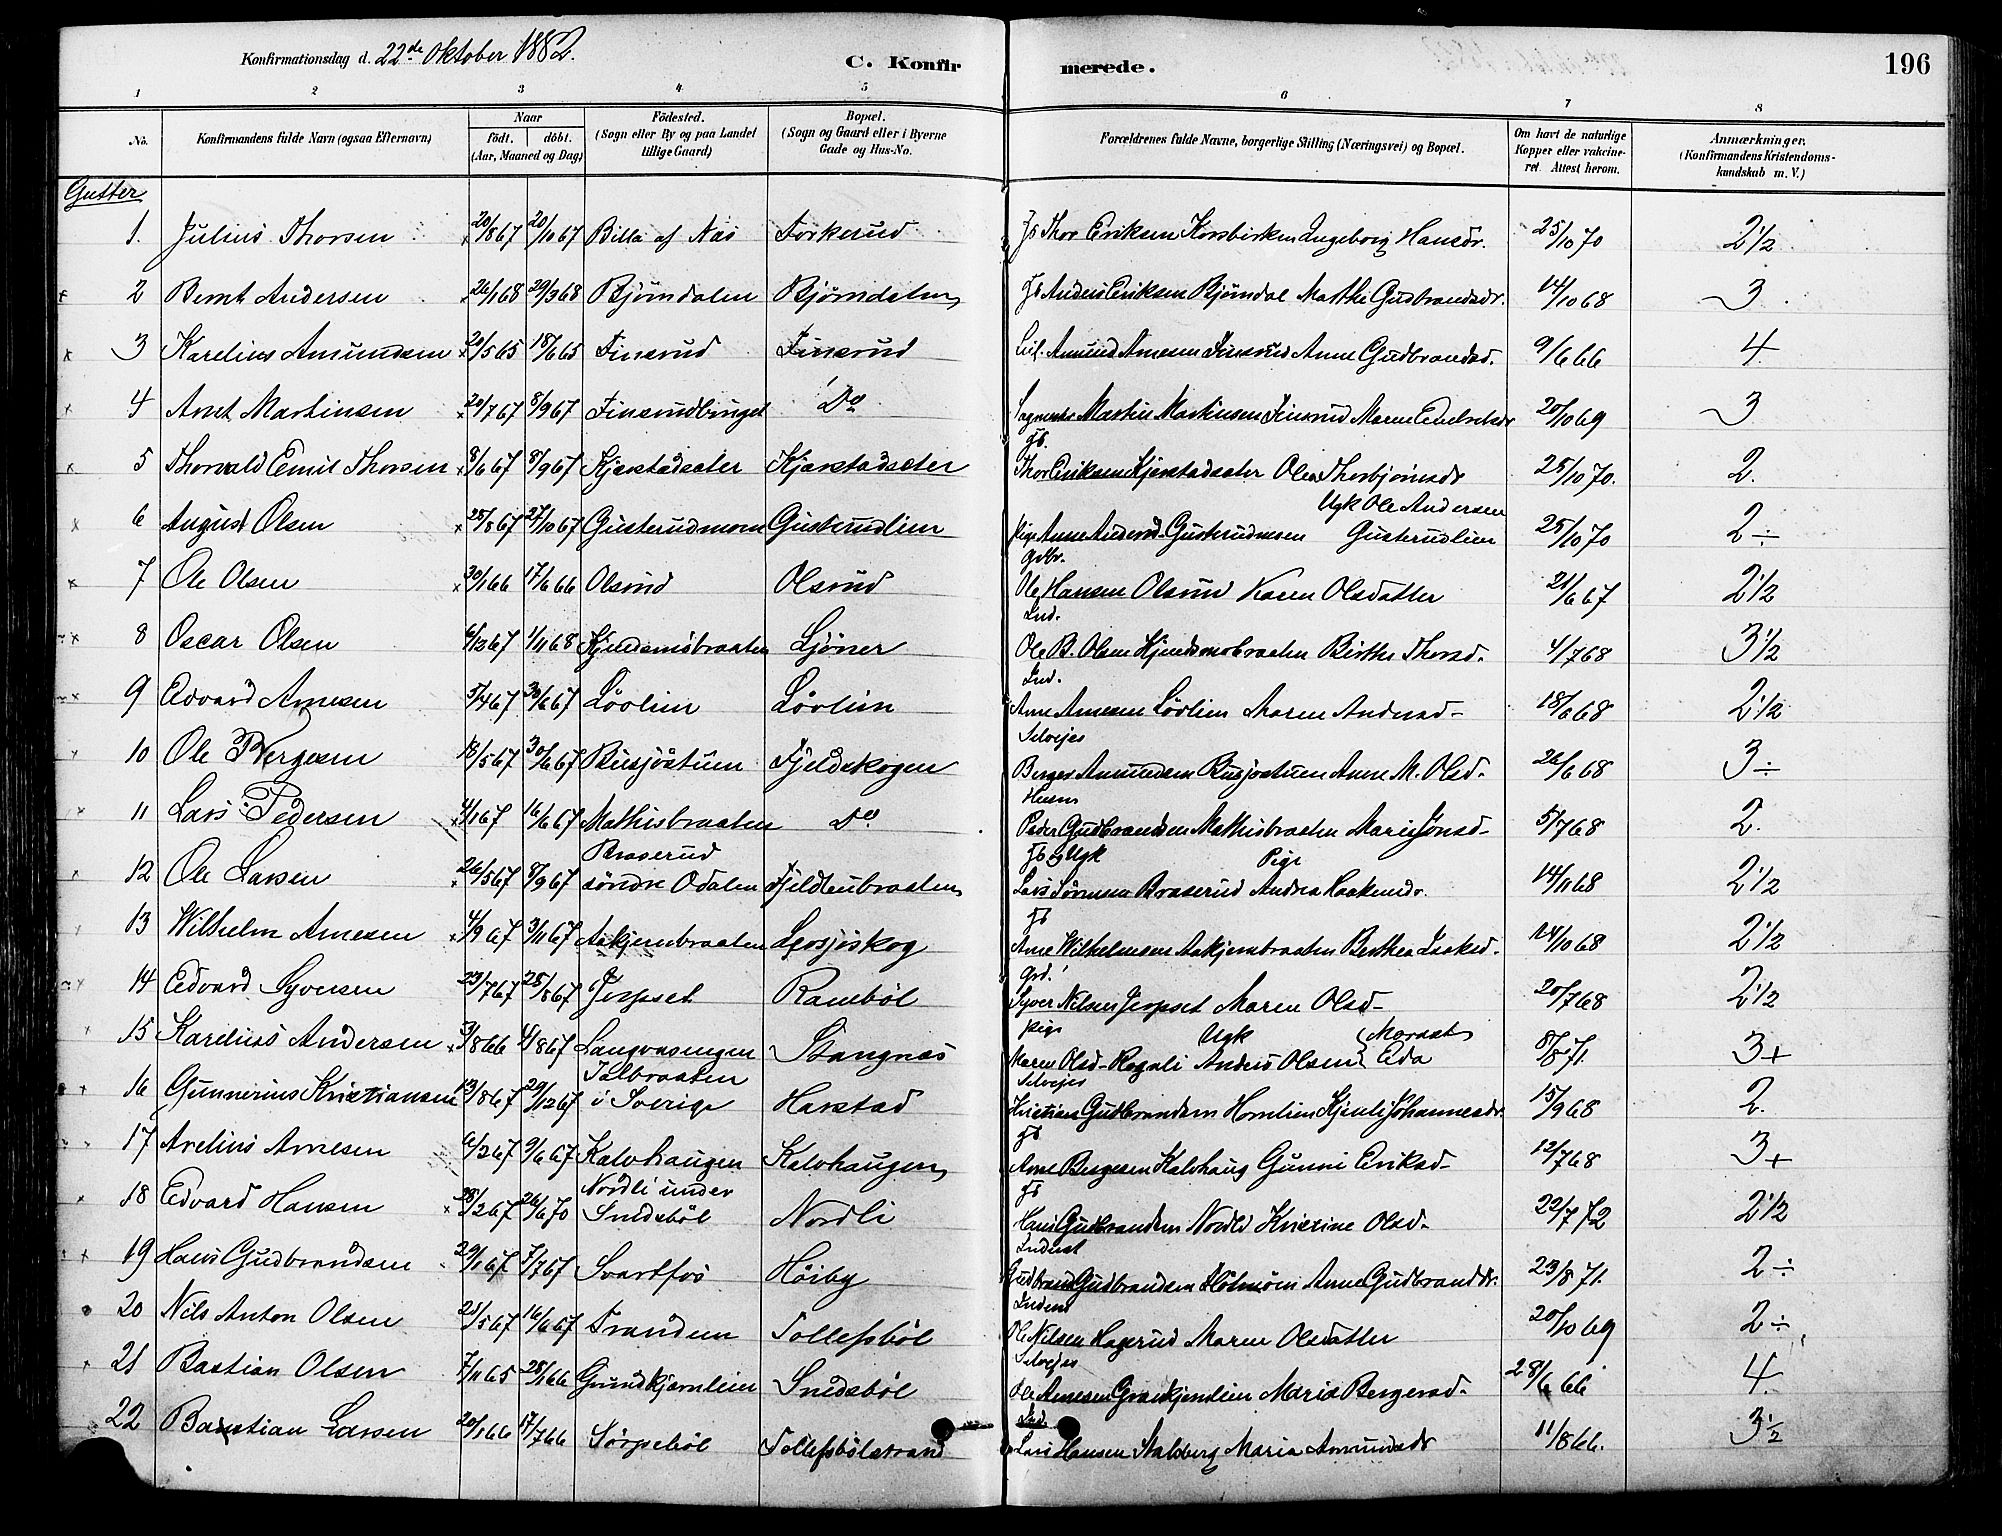 Konfirmationsdag d. 22de Oktober 1882. C. Konfirmerede. 196
1 2 3 4 5 6 7 8
No. Konfirmandens fulde Navn (ogsaa Efternavn) Naar födt. döbt. (Aar, Maaned og Dag) Födested. (Sogn eller By og paa Landet tillige Gaard) Bopæl. (Sogn og Gaard eller i Byerne Gade og Hus-No. Forældrenes fulde Navne, borgerlige Stilling (Næringsvei) og Bopæl. Om havt de naturlige Kopper eller vakcineret. Attest herom. Anmærkninger. (Konfirmandens Kristendomskundskab m. V.)
Gutter
1. Julius Thorsen 20/8 67 20/10 67 Billa af Nas Torkerud Thor Eriksen Korsbirken Ingeborg Hansdr. 25/10 70 2 1/2
2 Bernt Andersen 26/1 68 29/3 68 Björndalen Björndalen Anders Eriksen Björndal Marthe Gudbrandsdr. 14/10 68 3
3 Karelius Amundsen 20/5 65 18/6 65 Finsrud Finsrud Amund Arnesen Finsrud Anne Gudbrandsd. 9/6 66 4
4 Arnt Martinsen 20/7 67 8/9 67 Finsrudbruget Do Martin Martinsen Finsrud Maren 20/10 69 3
5 Thorvald Emil Thorsen 8/6 67 8/9 67 Kjerstadsater Kjerstadsæter Thor Eriksen Kjerstadsater Olea Thorbjörnsdr 25/10 70. 2.
6 August Olsen 28/8 67 27/10 67 Gusterudmoen Gusterudlien Pige Anne Andersd. Gusterudmoen Ugk Ole Andersen Gusterudlien 25/10 70 2÷
7 Ole Olsen 30/1 66 17/6 66 Olsrud Olsrud Gdbr. Ole Hansen Olsrud Karen Olsdatter 21/6 67 2 1/2
8 Oscar Olsen 6/12 67 1/11 68 Kjeldsmobraaten Ljöner Ind. Ole B. Olsen Berthe Thorsd. 4/7 68 3 1/2
9 Edvard Arnesen 5/4 67 30/6 67 Lövlien Lövlien Ind. Arne Arnesen Lövlien Maren Andersd- 18/6 68 2 1/2
10 Ole Bergesen 18/5 67 30/6 67 Busjöstuen Fjeldskogen Selvejer Berger Amundsen Busjostuen Anne M. Olsd. 26/6 68 3÷
11 Lars Pedersen 4/1 67 16/6 67 Mathisbraaten Do Husm Peder Gudbrandsen Mathisbraaten Marie Jonsd- 5/7 68 2.
12 Ole Larsen 26/5 67 8/9 67 Braserud söndre Odalen Fjeldlenbraaten Ugk Lars Sörensen Braserud Pige Andrea Haakensdr. 14/11 68 2 1/2
13 Wilhelm Arnesen 4/9 67 3/11 67 Aakjernbraaten Losjöskog Arne Wilhelmsen Aakjernbraaten Berthea Isaksd. 14/10 68 2 1/2
14 Edvard Syversen 23/7 67 25/8 67 Jerpset Ramböl Grd. Syver Nilsen Jerpset Maren Olsd- 20/7 68 2 1/2
15 Karelius Andersen 3/8 66 4/8 67 Langvasengen Stangnæs Pige Maren Olsd- Rogali Ugk Anders Olsen (Morast) Eda 8/8 71. 3+
16 Gunnerius Kristiansen 13/8 67 29/12 67 Talbraaten i Sverige Harstad Selvejer Kristian Gudbrandsen Hornlien Kjersti Johannesdr. 15/9 68 2.
17 Arelius Arnesen 6/2 67 9/6 67 Kalvhaugen Kalvhaugen Arne Bergesen Kalvhaug Gunni Eriksd- 12/7 68 3+
18 Edvard Hansen 28/2 67 26/6 70 Nordli under Snedsböl Nordli Hans Gudbrandsen Nordli Kristine Olsd- 22/7 72 2 1/2
19 Hans Gudbrandsen 29/1 67 7/7 67 Svartfos Höiby Inderst Gudbrand Gudbrandsen Anne Gudbrandsdr. 23/8 71. 2÷
20 Nils Anton Olsen 25/5 67 16/6 67 Tranden Tollefsböl Inderst Ole Nilsen Hagerud Maren Olsdatter 20/10 69 2÷
21 Bastian Olsen 7/11 65 28/1 66 Grundkjernlien Snedsböl Selvejer Ole Arnesen Maria Bergersd. 28/6 66 4.
22 Bastian Larsen 20/1 66 17/7 66 Sörpeböl Tollefsbölstrand Ind. Lars Hansen Stalsberg Maria Amundsdr 11/8 66. 3 1/2